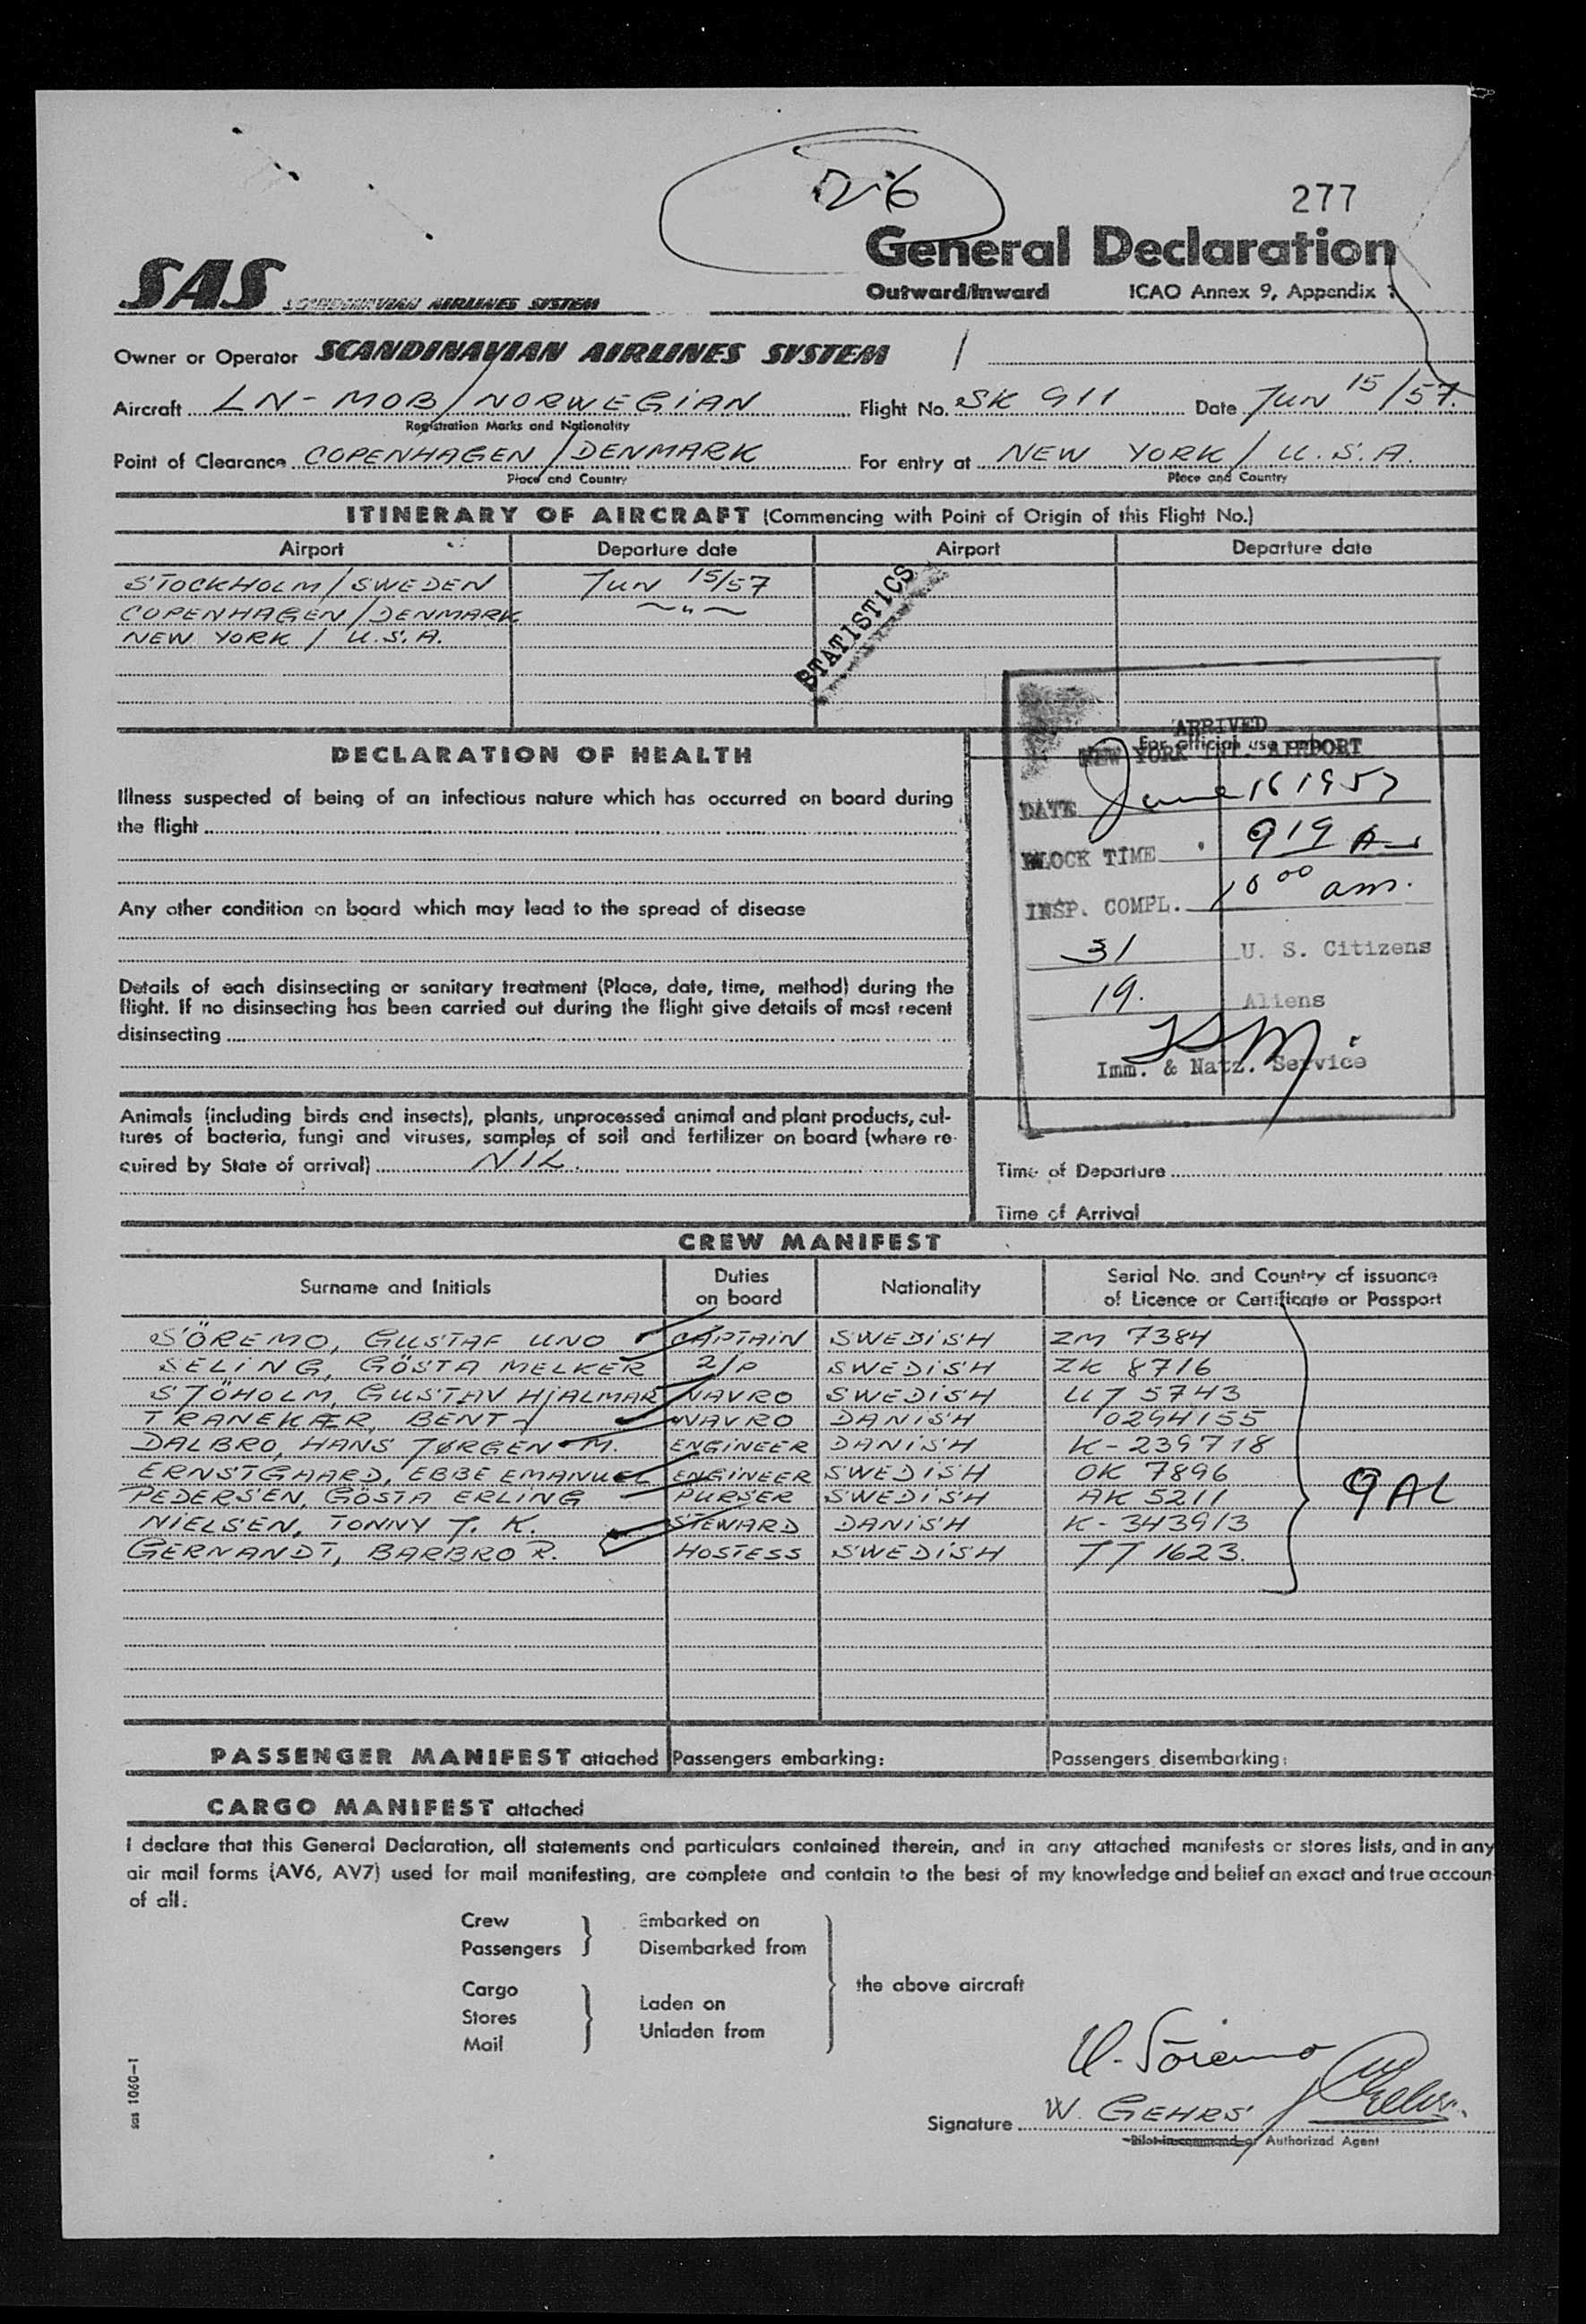 26
277
General Declaration
Outward/Inward ICAO Annex 9, Appendix 1
SAS SCANDINAVIAN AIRLINES SYSTEM
Owner or Operator SCANDINAVIAN AIRLINES SYSTEM
Aircraft LN-MOB/NORWEGIAN Flight No. SK 911 Date JUN 15/57.
Registration Marks and Nationality
Point of Clearance COPENHAGEN/DENMARK For entry at NEW YORK/U.S.A.
Place and Country Place and Country
ITINERARY OF AIRCRAFT (Commencing with Point of Origin of this Flight No.)
Airport Departure date Airport Departure date
STOCKHOLM/SWEDEN JUN 15/57
COPENHAGEN/DENMARK ~"~
NEW YORK/U.S.A.
STATISTICS
DECLARATION OF HEALTH
Illness suspected of being of an infectious nature which has occurred on board during
the flight
Any other condition on board which may lead to the spread of disease
Details of each disinsecting or sanitary treatment (Place, date, time, method) during the
flight. If no disinsecting has been carried out during the flight give details of most recent
disinsecting
Animals (including birds and insects), plants, unprocessed animal and plant products, cul-
tures of bacteria, fungi and viruses, samples of soil and fertilizer on board (where re-
quired by State of arrival) NIL
For official use only
ARRIVED
NEW YORK INT. AIRPORT
DATE June 16 1957
BLOCK TIME 919 A
INSP. COMPL. 10 00 am.
31 U. S. Citizens
19. Aliens
Imm. & Natz. Service
Time of Departure
Time of Arrival
CREW MANIFEST
Surname and Initials Duties on board Nationality Serial No. and Country of issuance of Licence or Certificate or Passport
SÖREMO, GUSTAF UNO CAPTAIN SWEDISH ZM 7384
SELING, GÖSTA MELKER 2/P SWEDISH ZK 8716
SJÖHOLM, GUSTAV HJALMAR NAVRO SWEDISH UJ 5743
TRANEKÆR, BENT NAVRO DANISH 0294155
DALBRO, HANS JØRGEN M. ENGINEER DANISH K-239718
ERNSTGAARD, EBBE EMANUEL ENGINEER SWEDISH OK 7896
PEDERSEN, GÖSTA ERLING PURSER SWEDISH AK 5211
NIELSEN, TONNY J. K. STEWARD DANISH K-343913
GERNANDT, BARBRO R. HOSTESS SWEDISH TT 1623.
9 AL
PASSENGER MANIFEST attached Passengers embarking: Passengers disembarking:
CARGO MANIFEST attached
I declare that this General Declaration, all statements and particulars contained therein, and in any attached manifests or stores lists, and in any
air mail forms (AV6, AV7) used for mail manifesting, are complete and contain to the best of my knowledge and belief an exact and true accoun
of all:
Crew Embarked on
Passengers Disembarked from
the above aircraft
Cargo
Stores Laden on
Mail Unladen from
U. Söremo
Signature W. GEHRS
Pilot-in-command or Authorized Agent
sas 1060-1